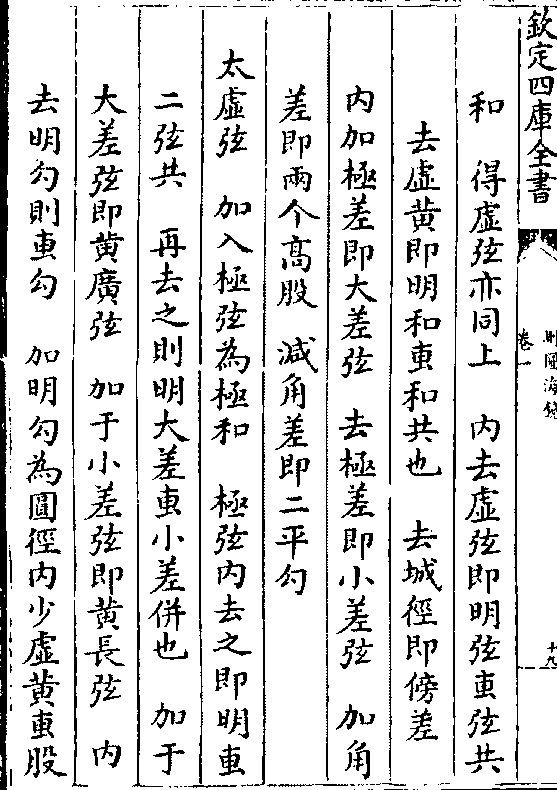 欽定四庫全書
測圓海鏡
卷一
十九
和　得虛弦亦同上　內去虛弦即明弦叀弦共
去虛黄即明和叀和共也　去城徑即傍差
內加極差即大差弦　去極差即小差弦　加角
差即兩个髙股　减角差即二平勾
太虛弦　加入極弦為極和　極弦內去之即明叀
二弦共　再去之則明大差叀小差併也　加于
大差弦即黄廣弦　加于小差弦即黄長弦　內
去明勾則叀勾　加明勾為圓徑內少虛黄叀股